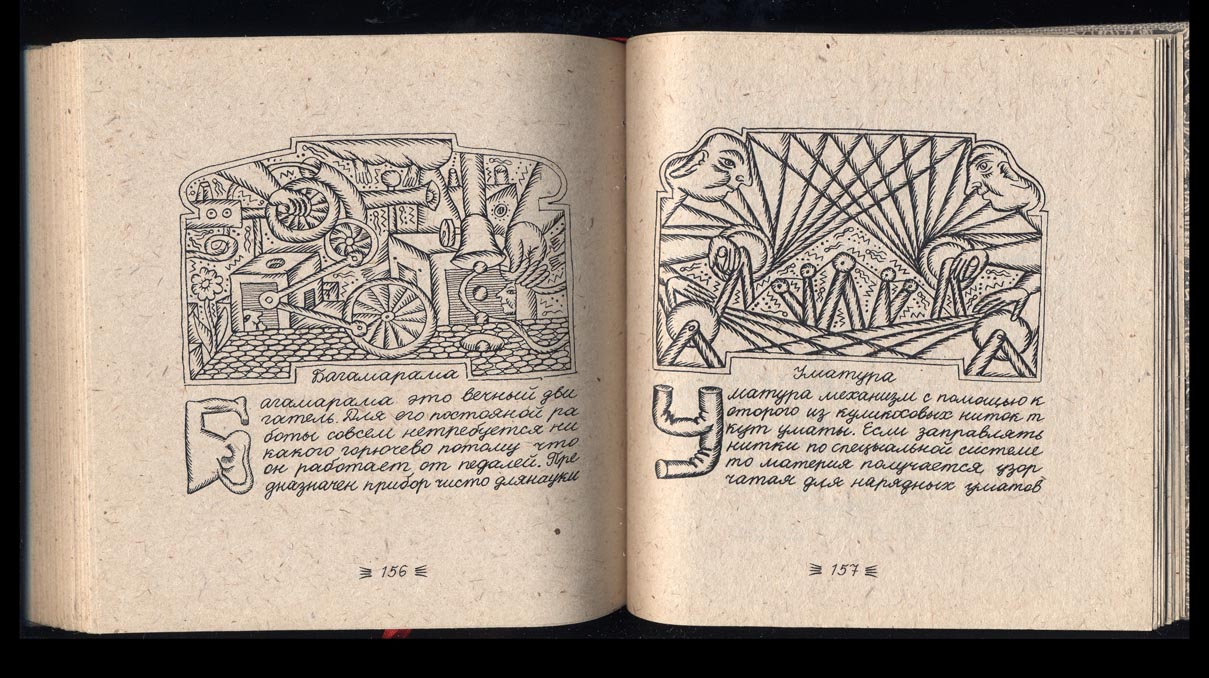 Багамарама
Багамарама это вечный дви
гатель. Для его постояной ра
боты совсем нетребуется ни
какого горючево потому что
он работает от педалей. Пре
дназначен прибор чисто длянауки
156
Уматура
Уматура механизм с помощью к
оторого из куликосовых ниток т
кут уматы. Если заправлять
нитки по спецыальной системе
то материя получается узор
чатая для нарядных уматов
157